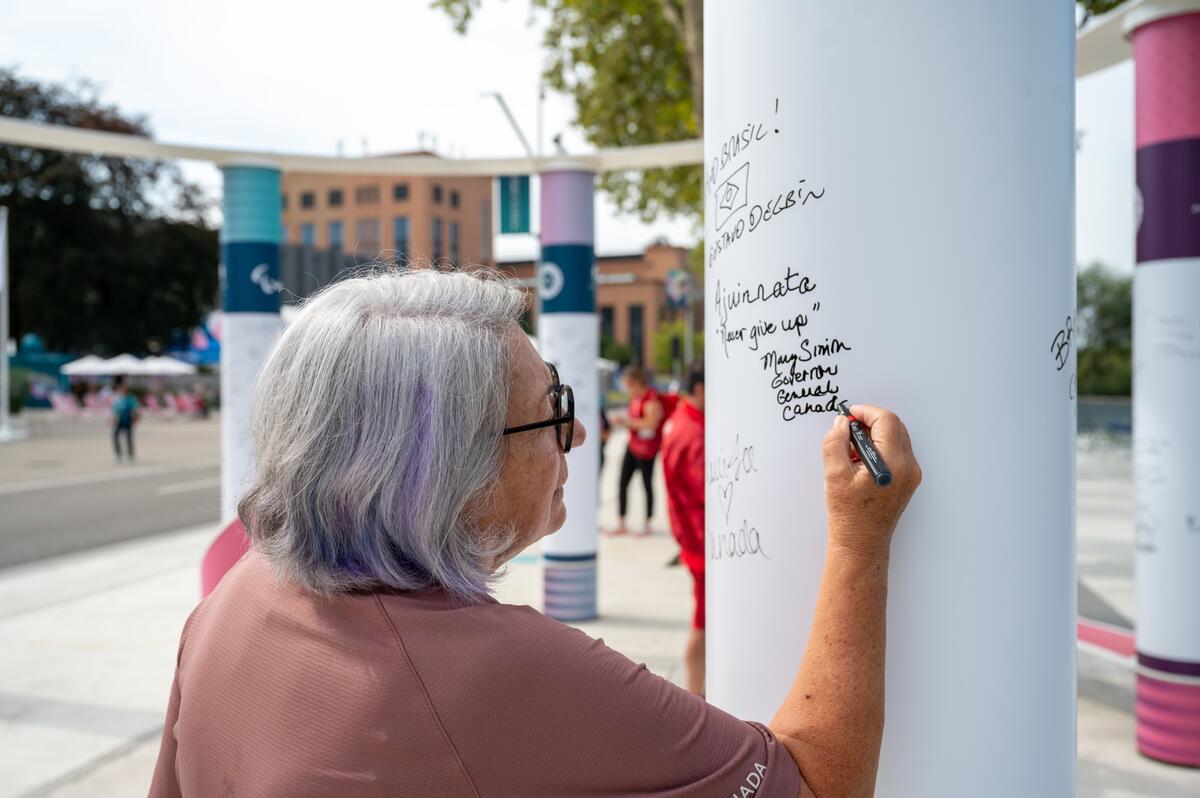 BRASIL!
GUSTAVO DELBIN
Ajuinnata
"Never give up"
Mary Simon
Governor
General
Canada
NADA